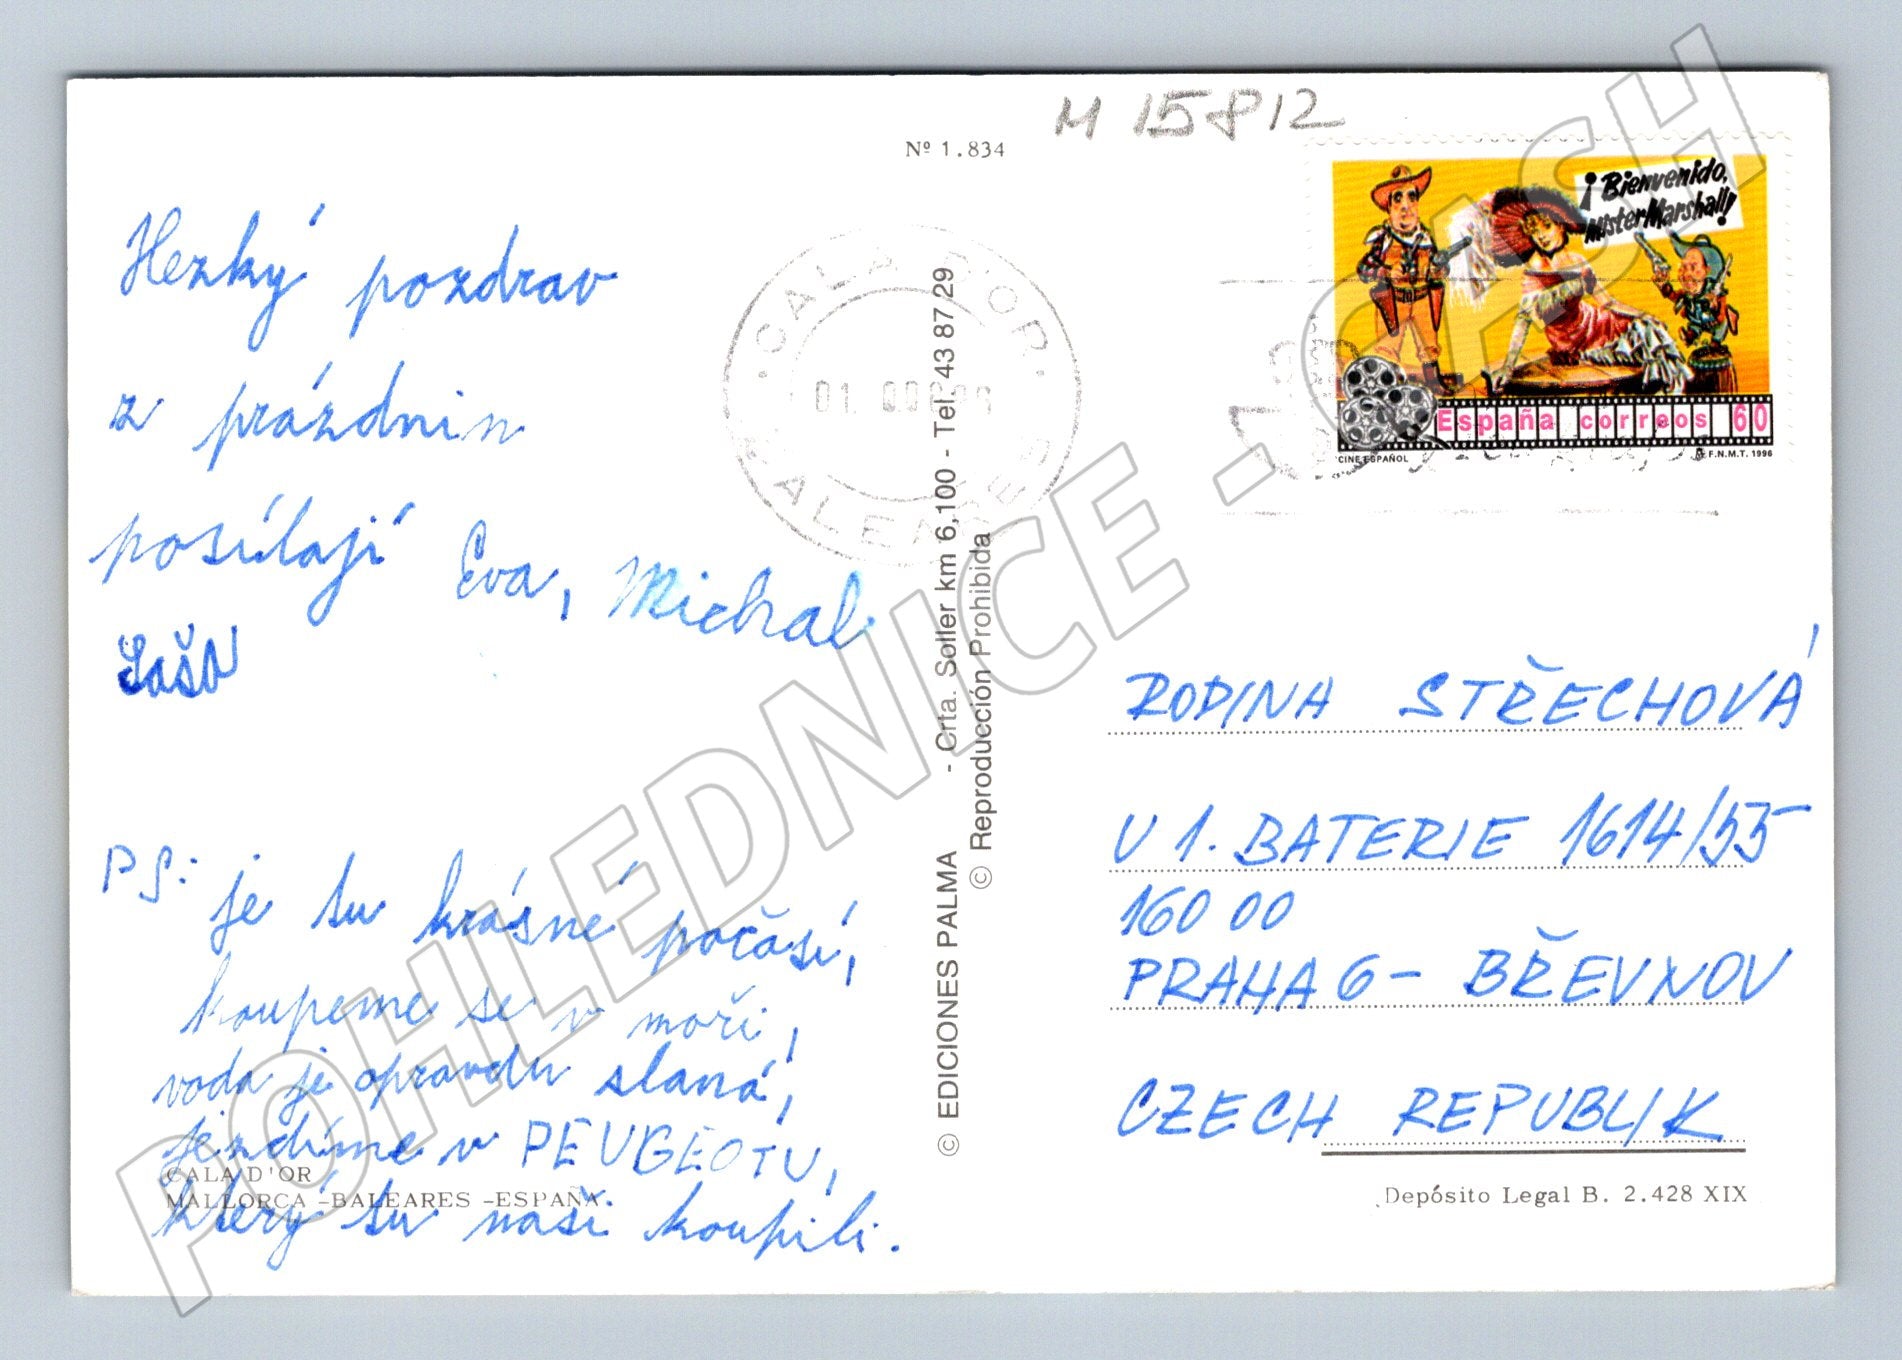 M 15812
Nº 1.834
Hezký pozdrav
z prázdnin
posílají Eva, Michal
Saša
PS: je tu krásné počasí,
koupeme se v moři,
voda je opravdu slaná,
jezdíme v PEUGEOTU,
který tu naši koupili.
CALA D'OR
MALLORCA -BALEARES -ESPAÑA
© EDICIONES PALMA - Crta. Soller km 6,100 - Tel. 43 87 29
© Reproducción Prohibida
CALA D'OR
01
BALEARES
¡Bienvenido,
Mister Marshall!
España correos 60
CINE ESPAÑOL
F.N.M.T. 1996
RODINA STŘECHOVÁ
U 1. BATERIE 1614/55
160 00
PRAHA 6 - BŘEVNOV
CZECH REPUBLIK
Depósito Legal B. 2.428 XIX
POHLEDNICE - CASH